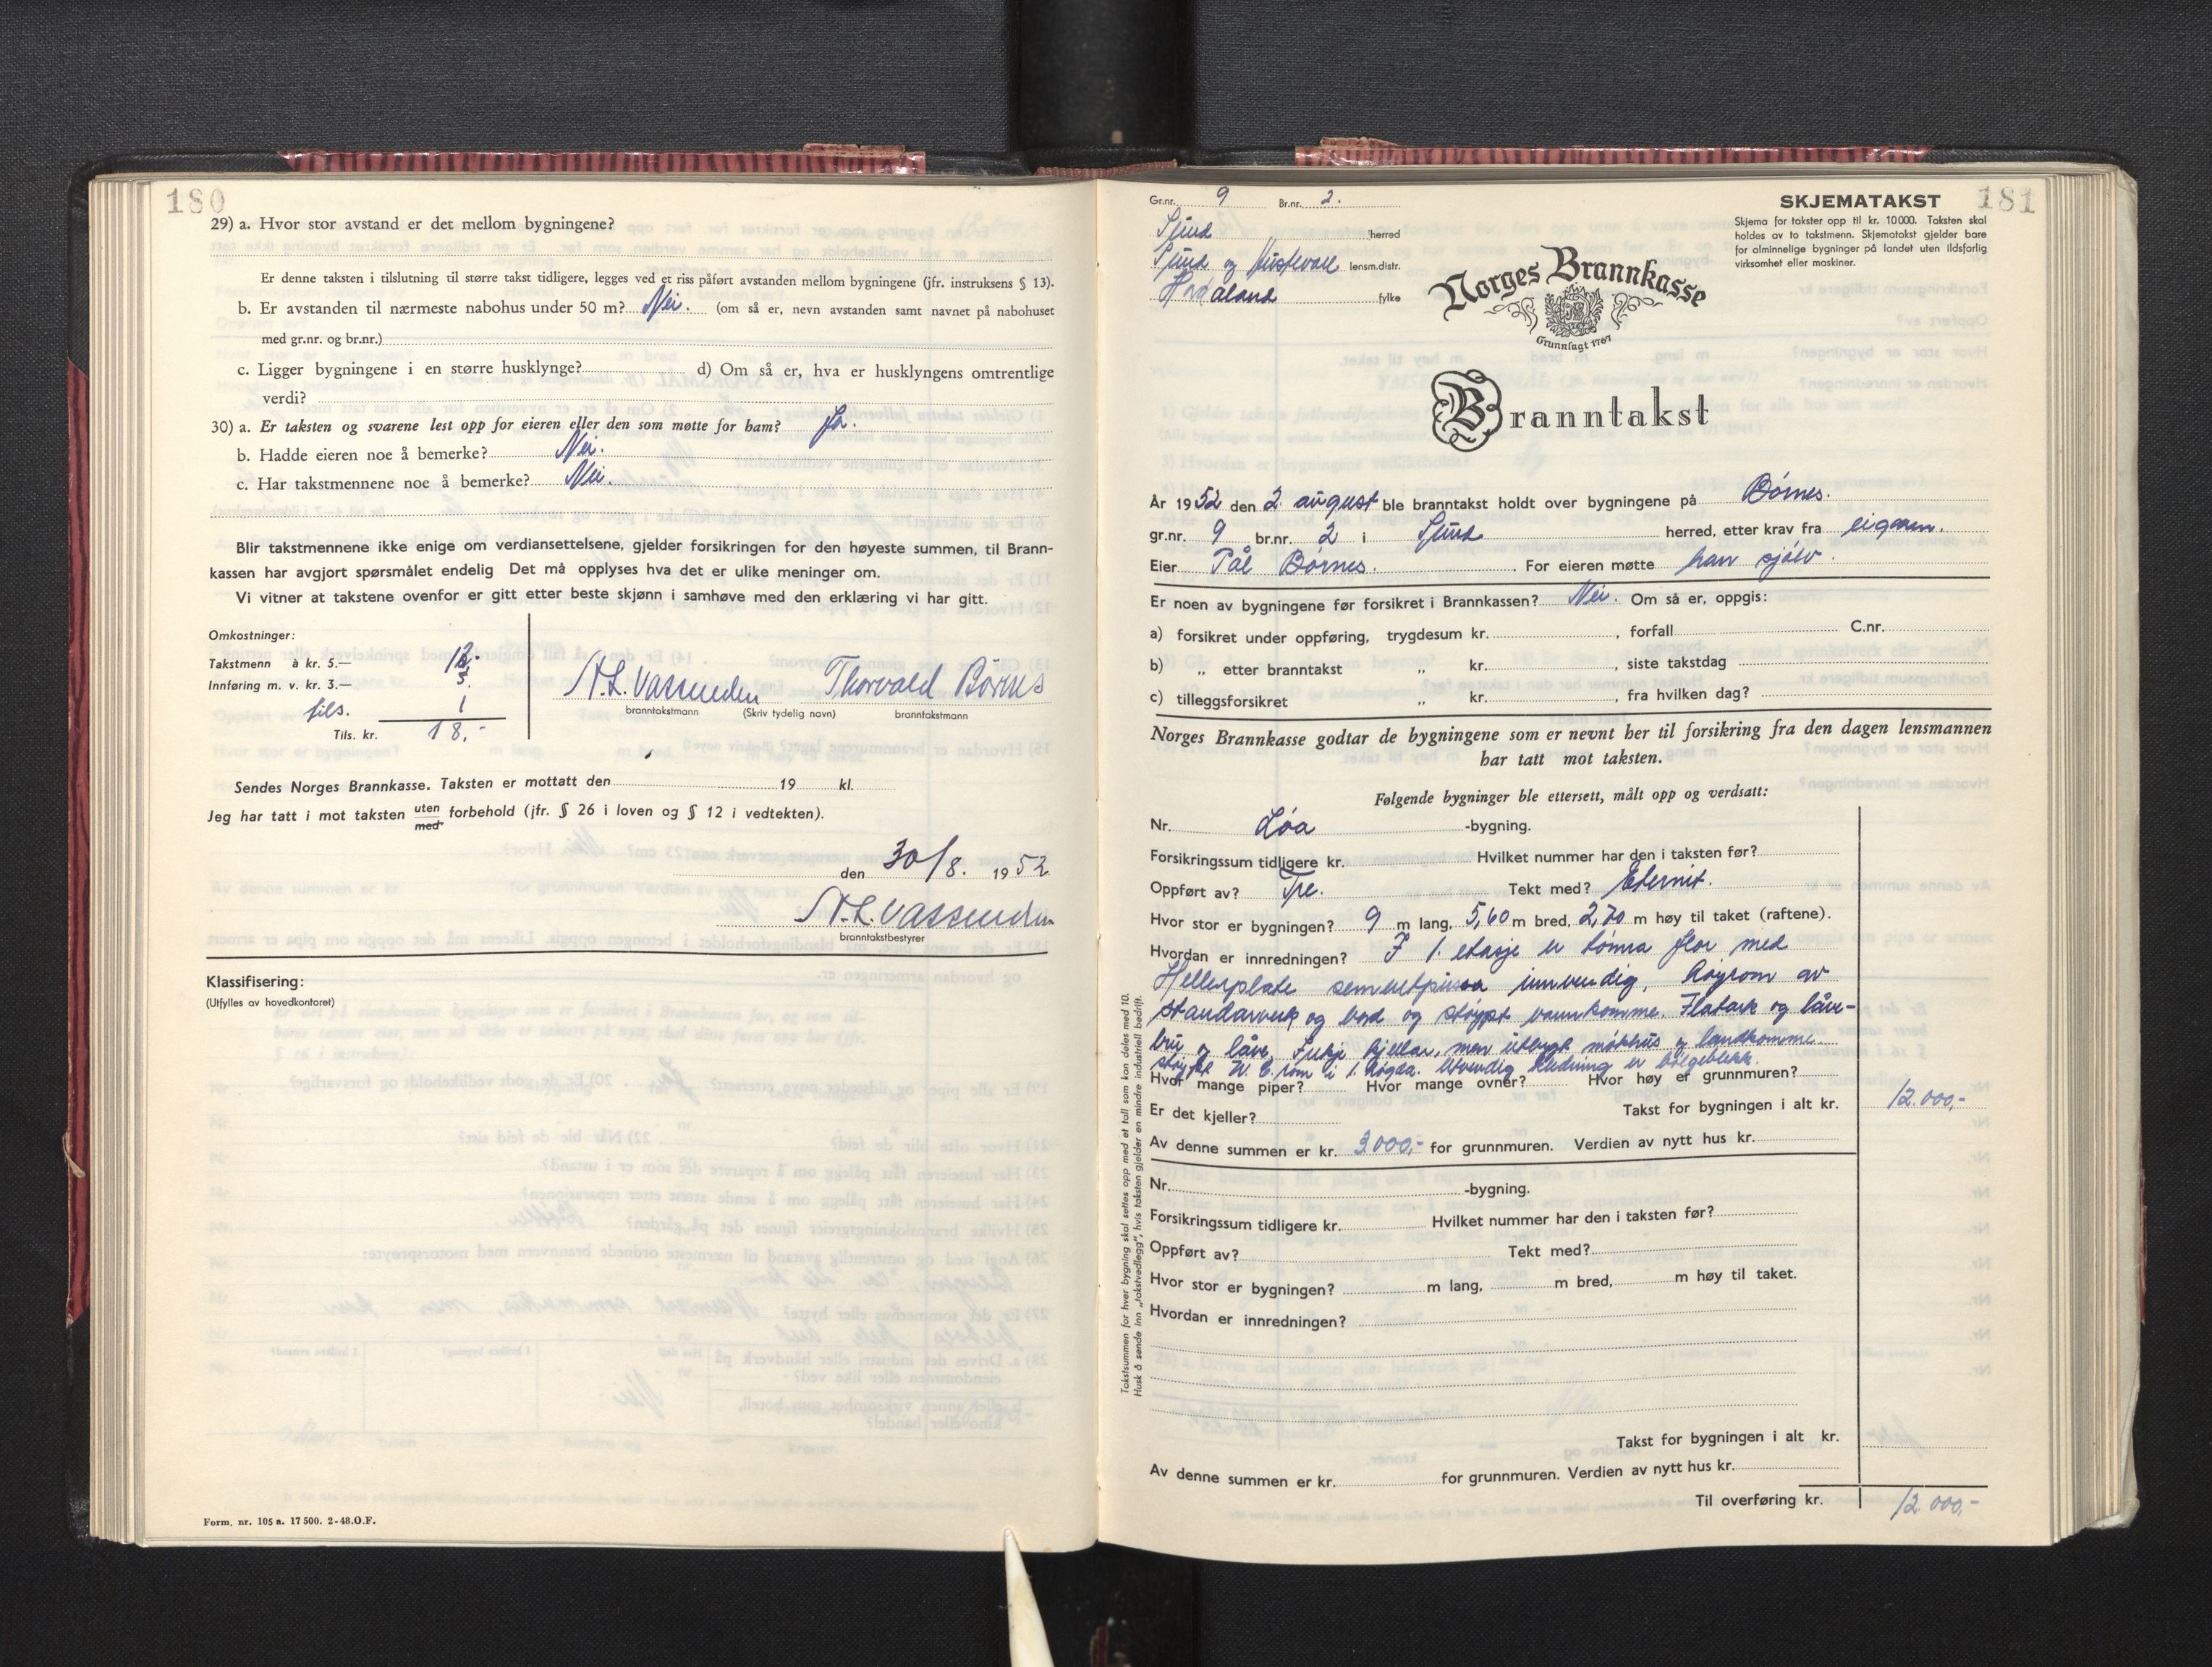 180
29) a. Hvor stor avstand er det mellom bygningene?
Er denne taksten i tilslutning til større takst tidligere, legges ved et riss påført avstanden mellom bygningene (jfr. instruksens § 13).
b. Er avstanden til nærmeste nabohus under 50 m? Nei. (om så er, nevn avstanden samt navnet på nabohuset
med gr.nr. og br.nr.)
c. Ligger bygningene i en større husklynge? d) Om så er, hva er husklyngens omtrentlige
verdi?
30) a. Er taksten og svarene lest opp for eieren eller den som møtte for ham? Ja.
b. Hadde eieren noe å bemerke? Nei.
c. Har takstmennene noe å bemerke? Nei.
Blir takstmennene ikke enige om verdiansettelsene, gjelder forsikringen for den høyeste summen, til Brann-
kassen har avgjort spørsmålet endelig Det må opplyses hva det er ulike meninger om.
Vi vitner at takstene ovenfor er gitt etter beste skjønn i samhøve med den erklæring vi har gitt.
Omkostninger:
Takstmenn à kr. 5.— 12.
Innføring m. v. kr. 3.— 5.
fils. 1
Tils. kr. 18,-
N. L. Vassenden Thorvald Børnes
branntakstmann (Skriv tydelig navn) branntakstmann
Sendes Norges Brannkasse. Taksten er mottatt den 19 kl.
Jeg har tatt i mot taksten uten forbehold (jfr. § 26 i loven og § 12 i vedtekten).
med
den 30/8. 1952
N. L. Vassenden
branntakstbestyrer
Klassifisering:
(Utfylles av hovedkontoret)
Form. nr. 105 a. 17 500. 2-48.O.F.
Gr.nr. 9 Br.nr. 2.
SKJEMATAKST 181
Skjema for takster opp til kr. 10 000. Taksten skal
holdes av to takstmenn. Skjematakst gjelder bare
for alminnelige bygninger på landet uten ildsfarlig
virksomhet eller maskiner.
Fjund herred
Fjund og lensm.distr.
Hordaland fylke
Norges Brannkasse
Grunnlagt 1767
Branntakst
År 1952 den 2. august ble branntakst holdt over bygningene på Børnes.
gr.nr. 9 br.nr. 2 i herred, etter krav fra eigaren.
Eier Pål Børnes. For eieren møtte han sjølv.
Er noen av bygningene før forsikret i Brannkassen? Nei. Om så er, oppgis:
a) forsikret under oppføring, trygdesum kr. , forfall C.nr.
b) „ etter branntakst „ kr. , siste takstdag
c) tilleggsforsikret „ kr. , fra hvilken dag?
Norges Brannkasse godtar de bygningene som er nevnt her til forsikring fra den dagen lensmannen
har tatt mot taksten.
Følgende bygninger ble ettersett, målt opp og verdsatt:
Nr. Løa -bygning.
Forsikringssum tidligere kr. Hvilket nummer har den i taksten før?
Oppført av? Tre. Tekt med? Eternit.
Hvor stor er bygningen? 9 m lang, 5,60 m bred, 2,70 m høy til taket (raftene).
Hvordan er innredningen? I 1. etasje er tømra flor med
Hellerplate sementpussa innvendig, høyrom av
standarverk og bord og støypt vannkomme. Flatark og låve-
bru og låve. Ikkje kjellar, men utbygt møkhus og landkomme
støypt W. C. rom i 1. høgda. Utvendig kledning er bølgeblekk.
Hvor mange piper? Hvor mange ovner? Hvor høy er grunnmuren?
Er det kjeller? Takst for bygningen i alt kr. 12.000,-
Av denne summen er kr. 3.000,- for grunnmuren. Verdien av nytt hus kr.
Nr. -bygning.
Forsikringssum tidligere kr. Hvilket nummer har den i taksten før?
Oppført av? Tekt med?
Hvor stor er bygningen? m lang, m bred, m høy til taket.
Hvordan er innredningen?
Takst for bygningen i alt kr.
Av denne summen er kr. for grunnmuren. Verdien av nytt hus kr.
Til overføring kr. 12.000,-
Takstsummen for hver bygning skal settes opp med et tall som kan deles med 10.
Husk å sende inn „takstvedlegg", hvis taksten gjelder en mindre industriell bedrift.